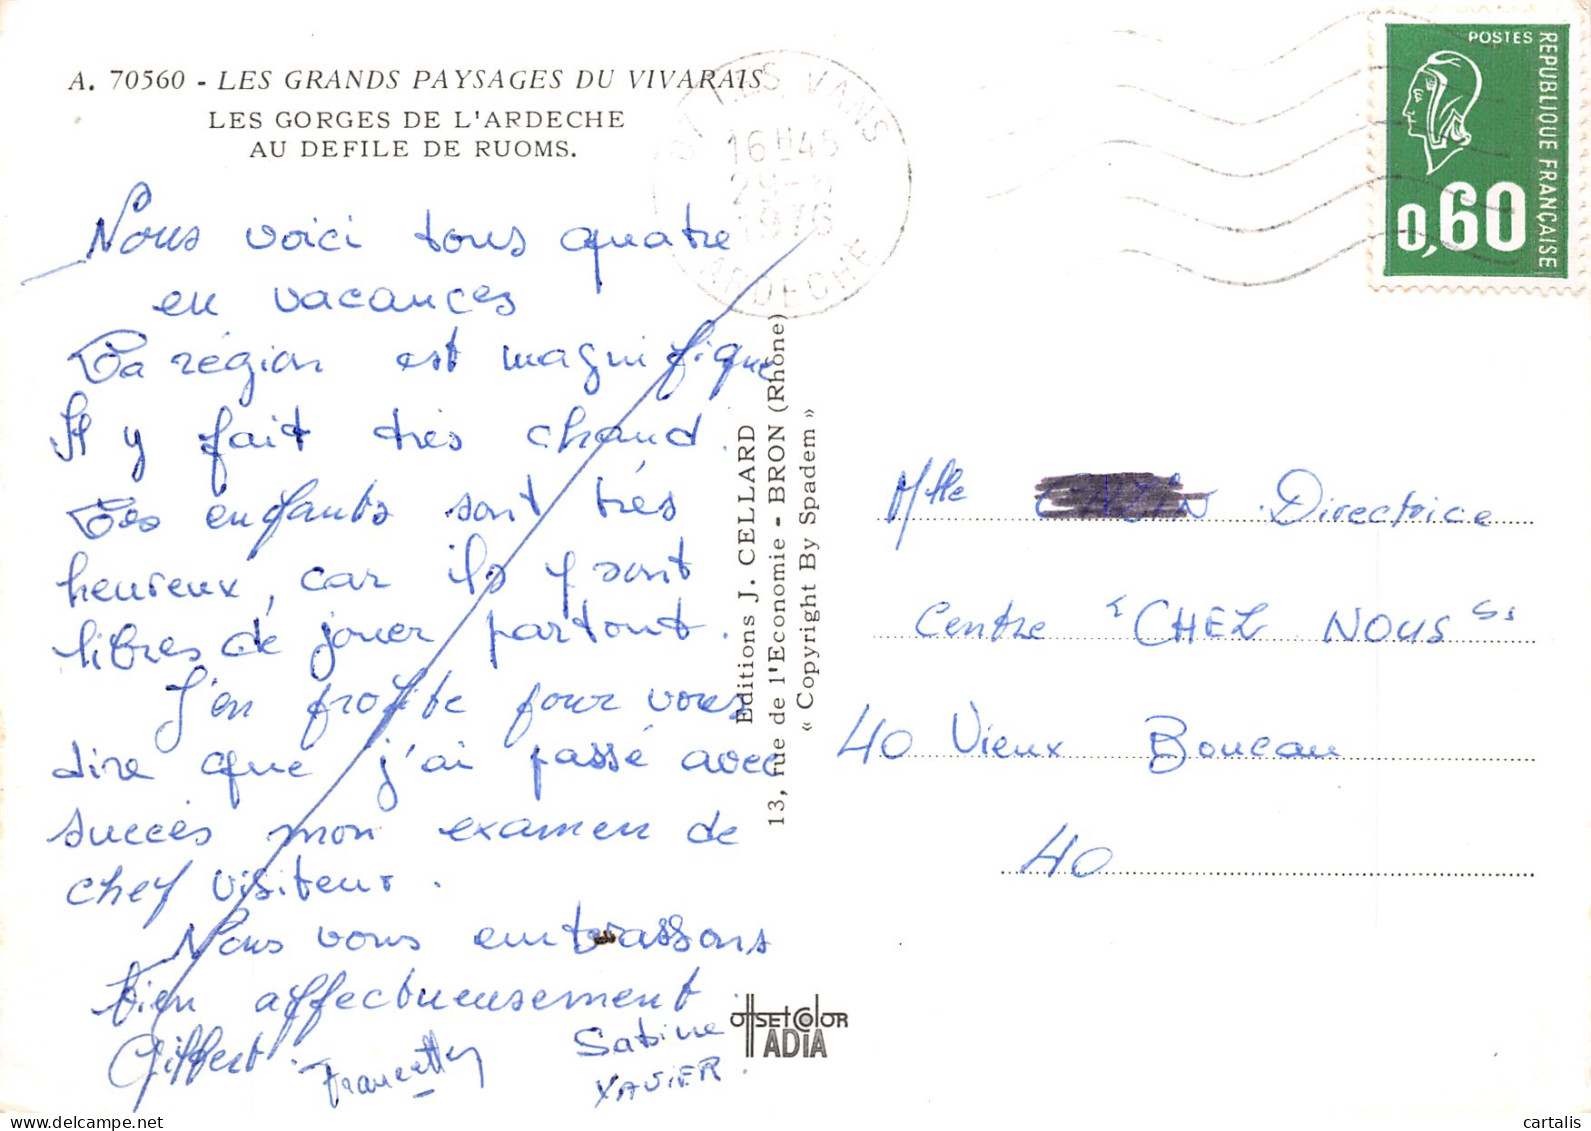 A. 70560 - LES GRANDS PAYSAGES DU VIVARAIS
LES GORGES DE L'ARDECHE
AU DEFILE DE RUOMS.
Nous voici tous quatre
en vacances
La région est magnifique
Il y fait très chaud.
Les enfants sont très
heureux, car ils y sont
libres de jouer partout.
J'en profite pour vous
dire que j'ai passé avec
succès mon examen de
chef visiteur.
Nous vous embrassons
bien affectueusement.
Gilbert.
Sabine
XAVIER.
Editions J. CELLARD
13, rue de l'Economie - BRON (Rhône)
« Copyright By Spadem »
OFFSET COLOR
ADIA
LES VANS
16H45
29-
1976
ARDECHE
POSTES
REPUBLIQUE FRANÇAISE
0,60
Mlle Directrice
Centre "CHEZ NOUS"
40 Vieux Boucau
40
cartalis
delcampe.net